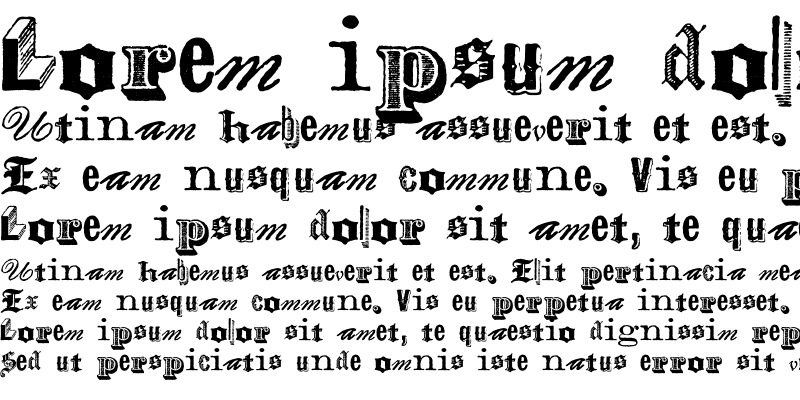 Lorem ipsum dol
Utinam habemus assueverit et est.
Ex eam nusquam commune. Vis eu p
Lorem ipsum dolor sit amet, te qua
Utinam habemus assueverit et est. Elit pertinacia mea
Ex eam nusquam commune. Vis eu perpetua interesset.
Lorem ipsum dolor sit amet, te quaestio dignissim rep
Sed ut perspiciatis unde omnis iste natus error sit v